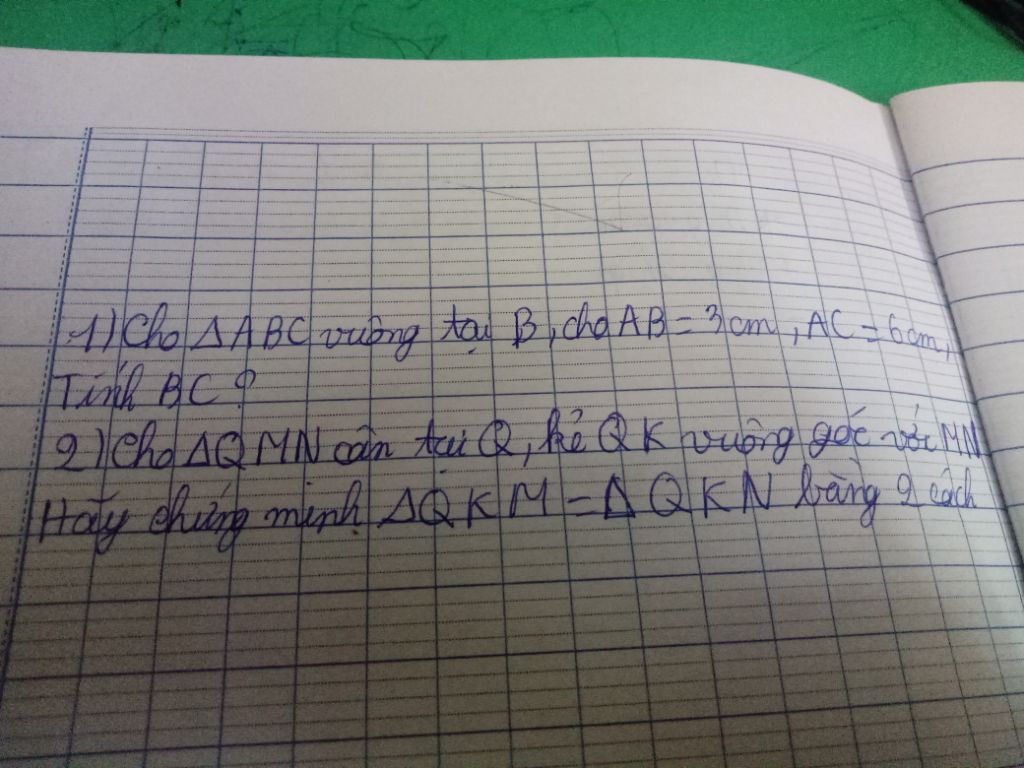 1) Cho ΔABC vuông tại B, cho AB = 3cm, AC = 6cm,
Tính BC?
2) Cho ΔQMN cân tại Q, kẻ QK vuông góc với MN
Hãy chứng minh ΔQKM = ΔQKN bằng 2 cách